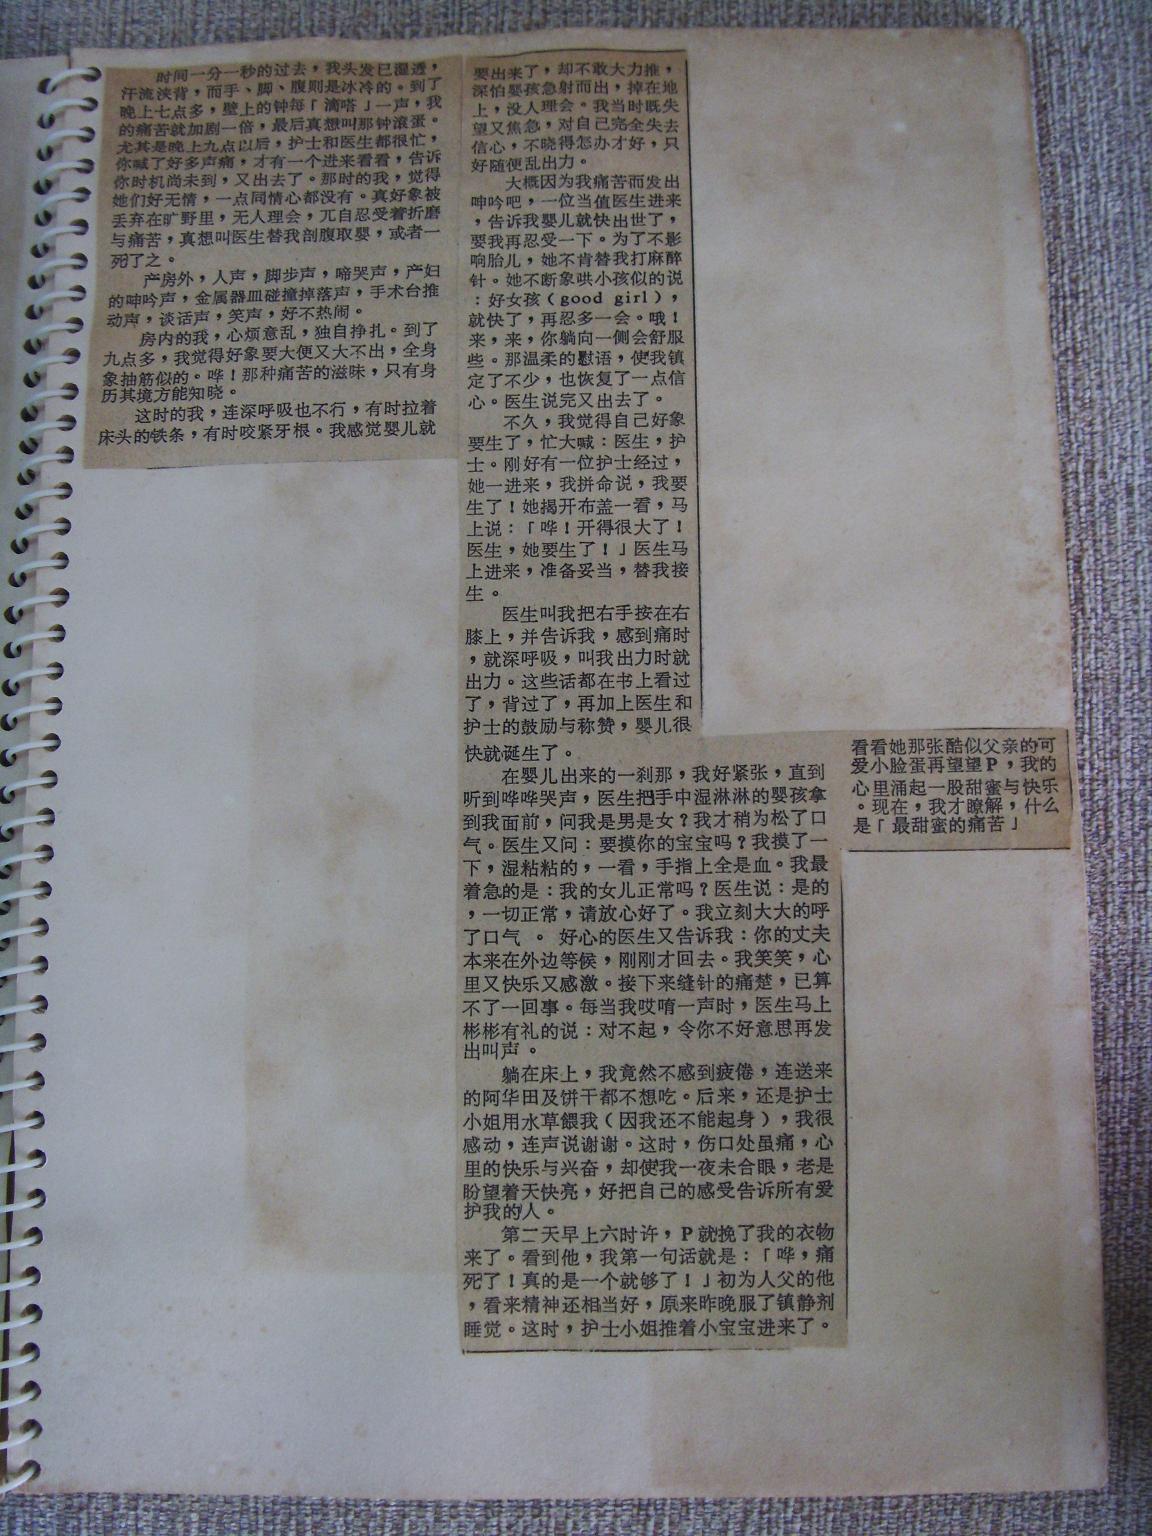 时间一分一秒的过去，我头发已湿透，
汗流浃背，而手、脚、腹则是冰冷的。到了
晚上七点多，壁上的钟每「滴嗒」一声，我
的痛苦就加剧一倍，最后真想叫那钟滚蛋。
尤其是晚上九点以后，护士和医生都很忙，
你喊了好多声痛，才有一个进来看看，告诉
你时机尚未到，又出去了。那时的我，觉得
她们好无情，一点同情心都没有。真好象被
丢弃在旷野里，无人理会，兀自忍受着折磨
与痛苦，真想叫医生替我剖腹取婴，或者一
死了之。
产房外，人声，脚步声，啼哭声，产妇
的呻吟声，金属器皿碰撞掉落声，手术台推
动声，谈话声，笑声，好不热闹。
房内的我，心烦意乱，独自挣扎。到了
九点多，我觉得好象要大便又大不出，全身
象抽筋似的。哗！那种痛苦的滋味，只有身
历其境方能知晓。
这时的我，连深呼吸也不行，有时拉着
床头的铁条，有时咬紧牙根。我感觉婴儿就
要出来了，却不敢大力推，
深怕婴孩急射而出，掉在地
上，没人理会。我当时既失
望又焦急，对自己完全失去
信心，不晓得怎办才好，只
好随便乱出力。
大概因为我痛苦而发出
呻吟吧，一位当值医生进来
，告诉我婴儿就快出世了，
要我再忍受一下。为了不影
响胎儿，她不肯替我打麻醉
针。她不断象哄小孩似的说
：好女孩（good girl），
就快了，再忍多一会。哦！
来，来，你躺向一侧会舒服
些。那温柔的慰语，使我镇
定了不少，也恢复了一点信
心。医生说完又出去了。
不久，我觉得自己好象
要生了，忙大喊：医生，护
士。刚好有一位护士经过，
她一进来，我拼命说，我要
生了！她揭开布盖一看，马
上说：「哗！开得很大了！
医生，她要生了！」医生马
上进来，准备妥当，替我接
生。
医生叫我把右手按在右
膝上，并告诉我，感到痛时
，就深呼吸，叫我出力时就
出力。这些话都在书上看过
了，背过了，再加上医生和
护士的鼓励与称赞，婴儿很
快就诞生了。
在婴儿出来的一刹那，我好紧张，直到
听到哗哗哭声，医生把手中湿淋淋的婴孩拿
到我面前，问我是男是女？我才稍为松了口
气。医生又问：要摸你的宝宝吗？我摸了一
下，湿粘粘的，一看，手指上全是血。我最
着急的是：我的女儿正常吗？医生说：是的
，一切正常，请放心好了。我立刻大大的呼
了口气 。 好心的医生又告诉我：你的丈夫
本来在外边等候，刚刚才回去。我笑笑，心
里又快乐又感激。接下来缝针的痛楚，已算
不了一回事。每当我哎唷一声时，医生马上
彬彬有礼的说：对不起，令你不好意思再发
出叫声。
躺在床上，我竟然不感到疲倦，连送来
的阿华田及饼干都不想吃。后来，还是护士
小姐用水草餵我（因我还不能起身），我很
感动，连声说谢谢。这时，伤口处虽痛，心
里的快乐与兴奋，却使我一夜未合眼，老是
盼望着天快亮，好把自己的感受告诉所有爱
护我的人。
第二天早上六时许，P就挽了我的衣物
来了。看到他，我第一句话就是：「哗，痛
死了！真的是一个就够了！」初为人父的他
，看来精神还相当好，原来昨晚服了镇静剂
睡觉。这时，护士小姐推着小宝宝进来了。
看看她那张酷似父亲的可
爱小脸蛋再望望P，我的
心里涌起一股甜蜜与快乐
。现在，我才瞭解，什么
是「最甜蜜的痛苦」